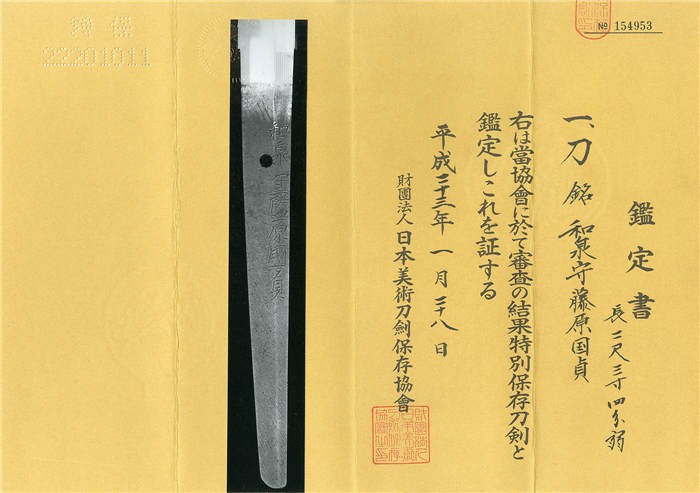 № 154953
鑑定書
一、刀 銘 和泉守藤原国貞
長二尺三寸四分弱
右は當協會に於て審査の結果特別保存刀剣と
鑑定しこれを証する
平成二十三年一月二十八日
財團法人 日本美術刀劍保存協會
特保
22201011
和泉守藤原国貞